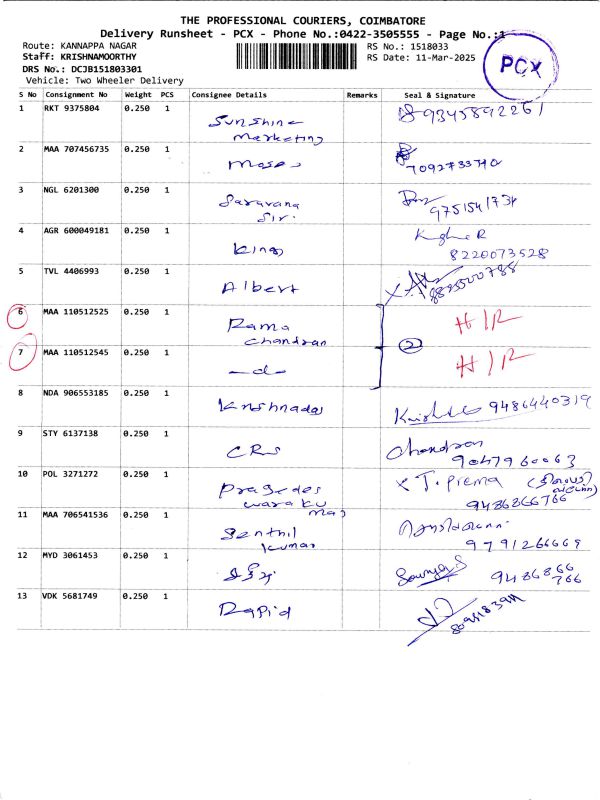 THE PROFESSIONAL COURIERS, COIMBATORE
Delivery Runsheet - PCX - Phone No.:0422-3505555 - Page No.:1
Route: KANNAPPA NAGAR
RS No.: 1518033
Staff: KRISHNAMOORTHY
RS Date: 11-Mar-2025
DRS No.: DCJB151803301
Vehicle: Two Wheeler Delivery
PCX
S No Consignment No Weight PCS Consignee Details Remarks Seal & Signature
1 RKT 9375804 0.250 1 Sunshine Marketing 9345892261
2 MAA 707456735 0.250 1 Moses
3 NGL 6201300 0.250 1 Saravana Sir.
4 AGR 600049181 0.250 1 King 8220073528
5 TVL 4406993 0.250 1 Albert
6 MAA 110512525 0.250 1 Rama Chandran H/R
2
7 MAA 110512545 0.250 1 -d- H/R
8 NDA 906553185 0.250 1 Krishnadas 9486440319
9 STY 6137138 0.250 1 CRS Chandran
10 POL 3271272 0.250 1 X T. Prema
9486866766
11 MAA 706541536 0.250 1 Senthil Kumar
9791266669
12 MYD 3061453 0.250 1 Sowmya S 9486866 766
13 VDK 5681749 0.250 1 Rapid